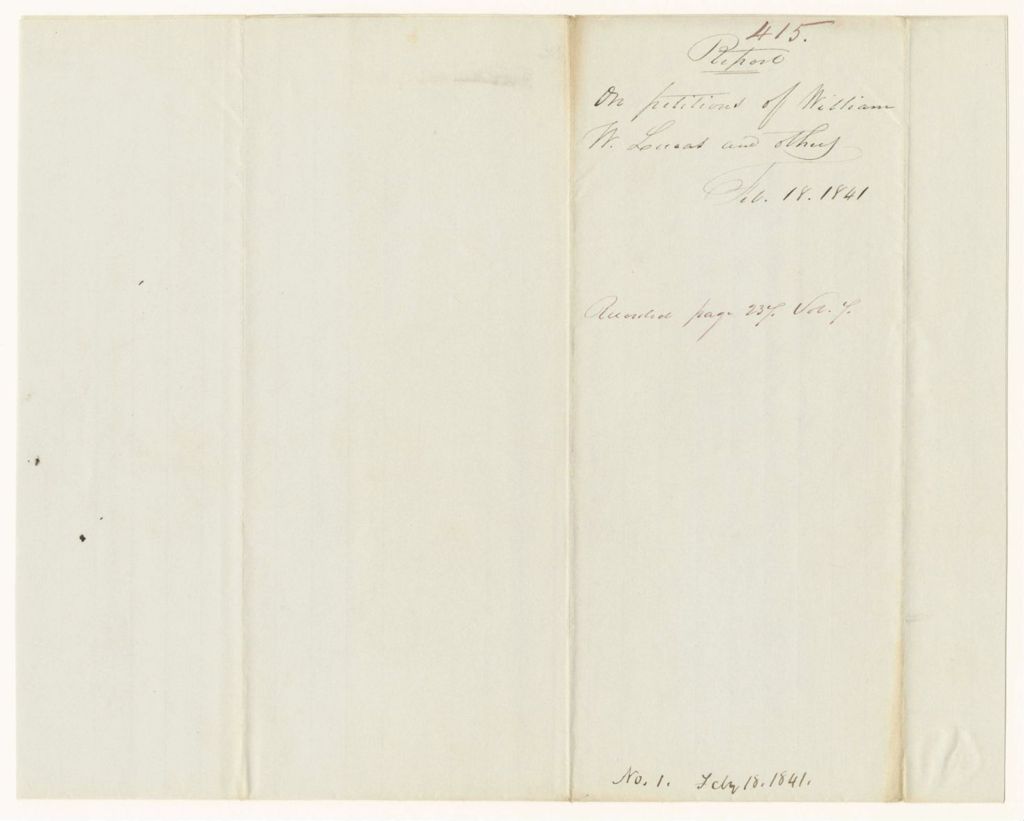 415.
Report
On petitions of William
W. Lucas and others
Feb. 18. 1841
Recorded page 237. Vol. 7.
No. 1. Feby 18. 1841.